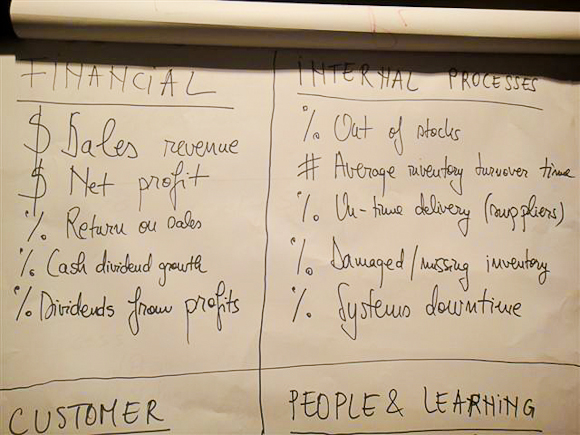 FINANCIAL
$ Sales revenue
$ Net profit
% Return on sales
% Cash dividend growth
% Dividends from profits
INTERNAL PROCESSES
% Out of stocks
# Average inventory turnover time
% On-time delivery (suppliers)
% Damaged/missing inventory
% Systems downtime
CUSTOMER
PEOPLE & LEARNING